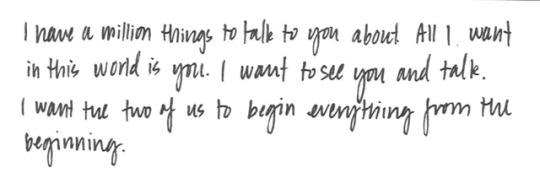 I have a million things to talk to you about. All I want
in this world is you. I want to see you and talk.
I want the two of us to begin everything from the
beginning.